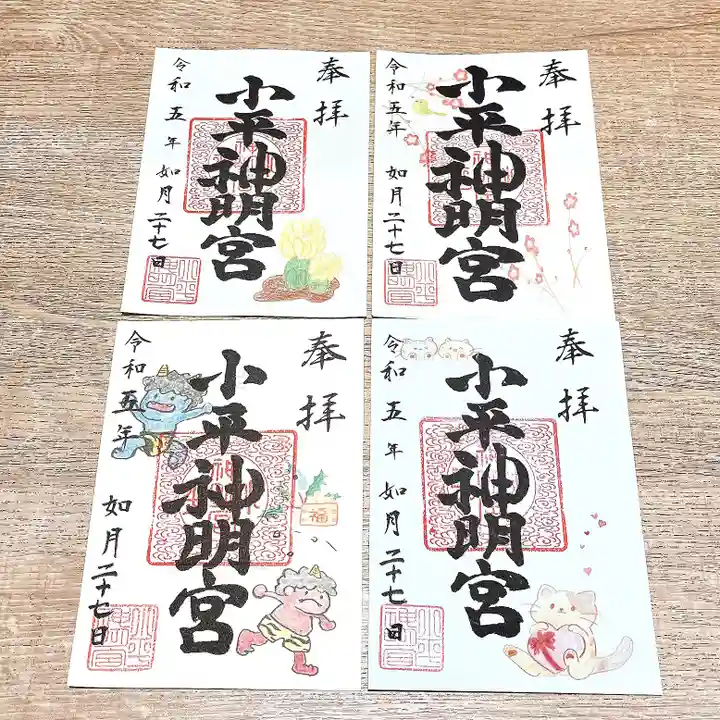 奉拝
小平神明宮
令和五年如月二十七日
奉拝
小平神明宮
令和五年如月二十七日
奉拝
小平神明宮
令和五年如月二十七日
福
奉拝
小平神明宮
令和五年如月二十七日